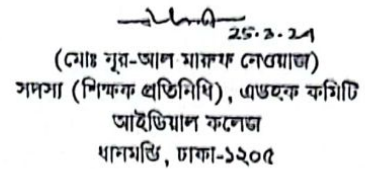 25.3.24
(মোঃ নূর-আল মারুফ নেওয়াজ)
সদস্য (শিক্ষক প্রতিনিধি), এডহক কমিটি
আইডিয়াল কলেজ
ধানমন্ডি, ঢাকা-১২০৫